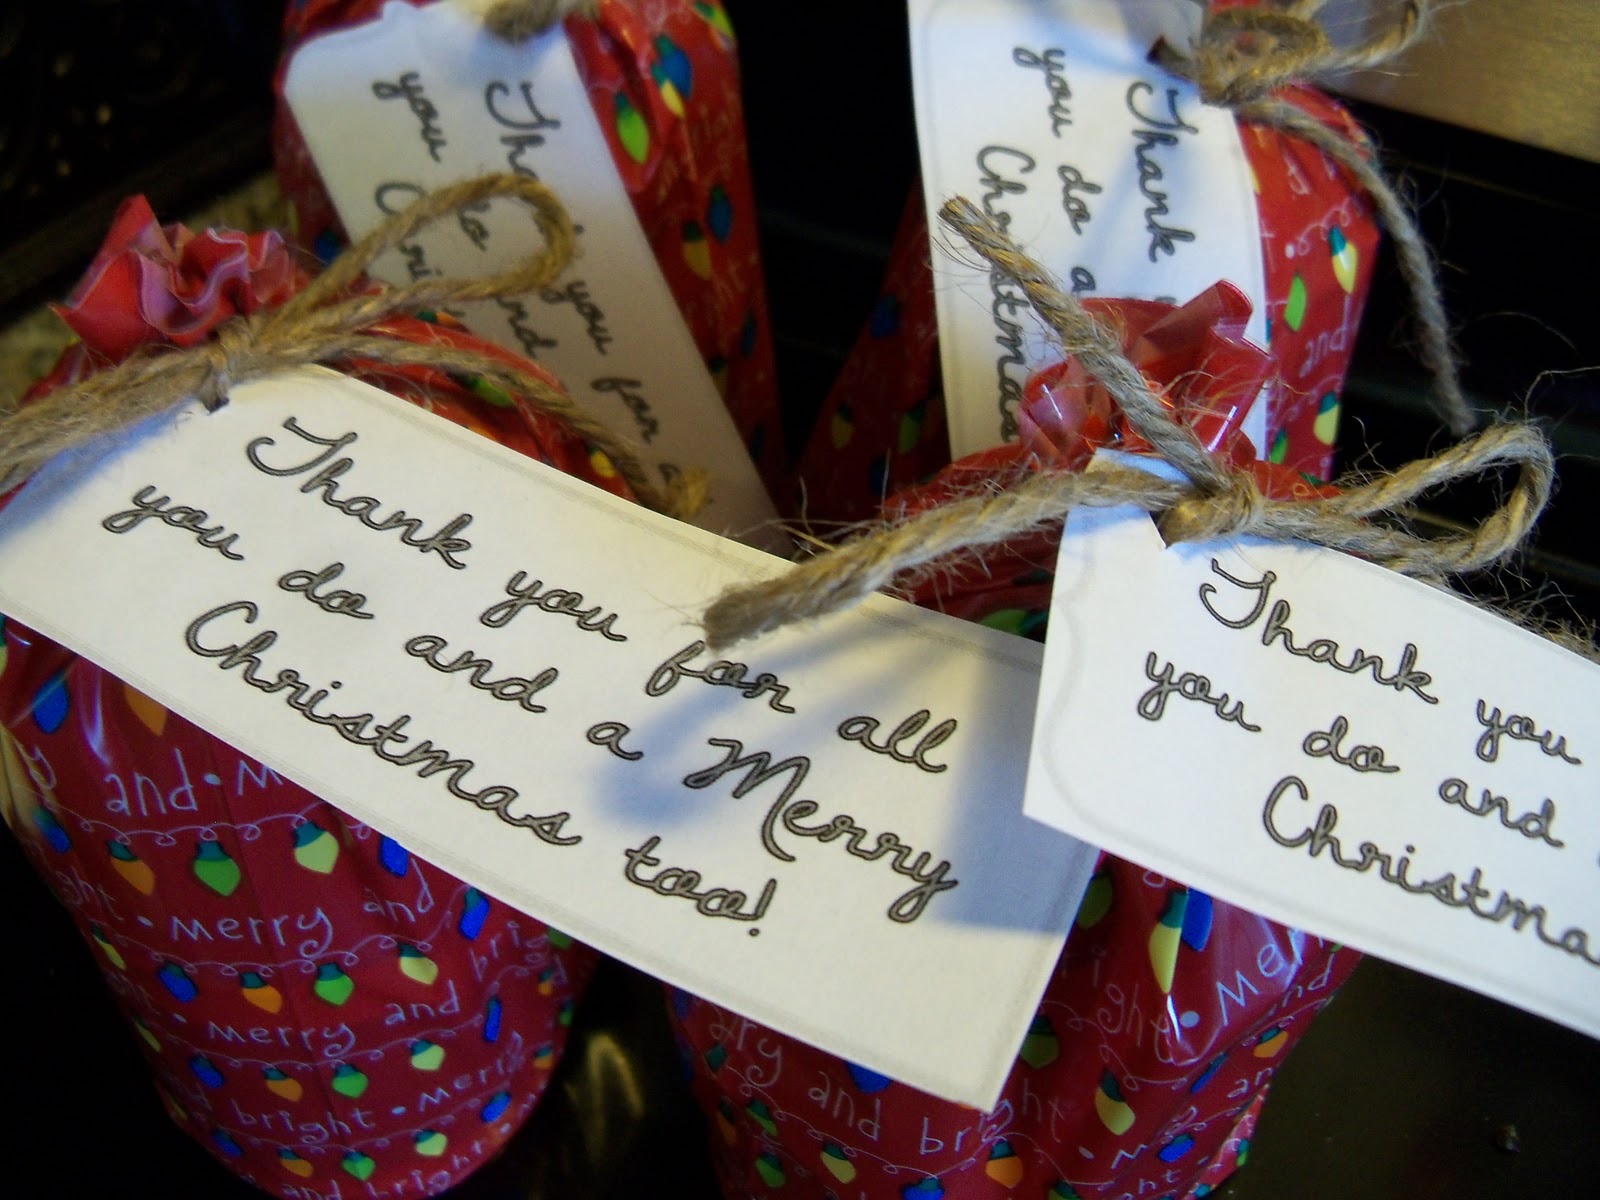 Thank you for all
you do and a Merry
Christmas too!
Thank you
you do and
Christmas
Thank you for a
you do and
Thank
you do a
Christmas
and • Me
merry and
merry and
bright • merry
and bright
merry and bright
and